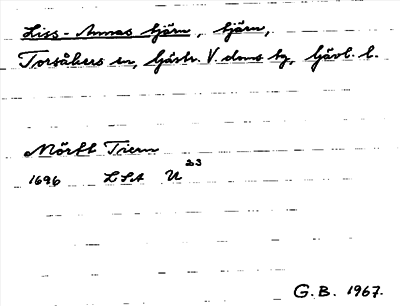 Liss-Annas tjärn, tjärn,
Torsåkers sn, Gästr. V. doms bg, Gävl. l.
Mörkt Tiern
1696 LSA U 23
G.B. 1967.